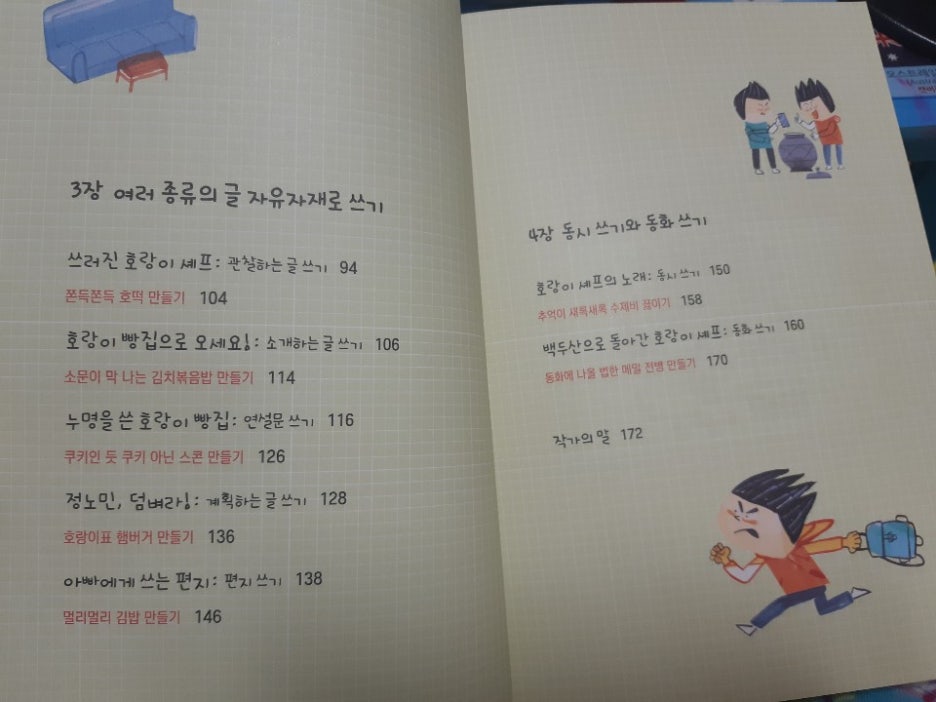 3장 여러 종류의 글 자유자재로 쓰기
쓰러진 호랑이 셰프: 관찰하는 글 쓰기 94
쫀득쫀득 호떡 만들기 104
호랑이 빵집으로 오세요!: 소개하는 글 쓰기 106
소문이 막 나는 김치볶음밥 만들기 114
누명을 쓴 호랑이 빵집: 연설문 쓰기 116
쿠키인 듯 쿠키 아닌 스콘 만들기 126
정노민, 덤벼라!: 계획하는 글 쓰기 128
호랑이표 햄버거 만들기 136
아빠에게 쓰는 편지: 편지 쓰기 138
멀리멀리 김밥 만들기 146
4장 동시 쓰기와 동화 쓰기
호랑이 셰프의 노래: 동시 쓰기 150
추억이 새록새록 수제비 끓이기 158
백두산으로 돌아간 호랑이 셰프: 동화 쓰기 160
동화에 나올 법한 메밀 전병 만들기 170
작가의 말 172